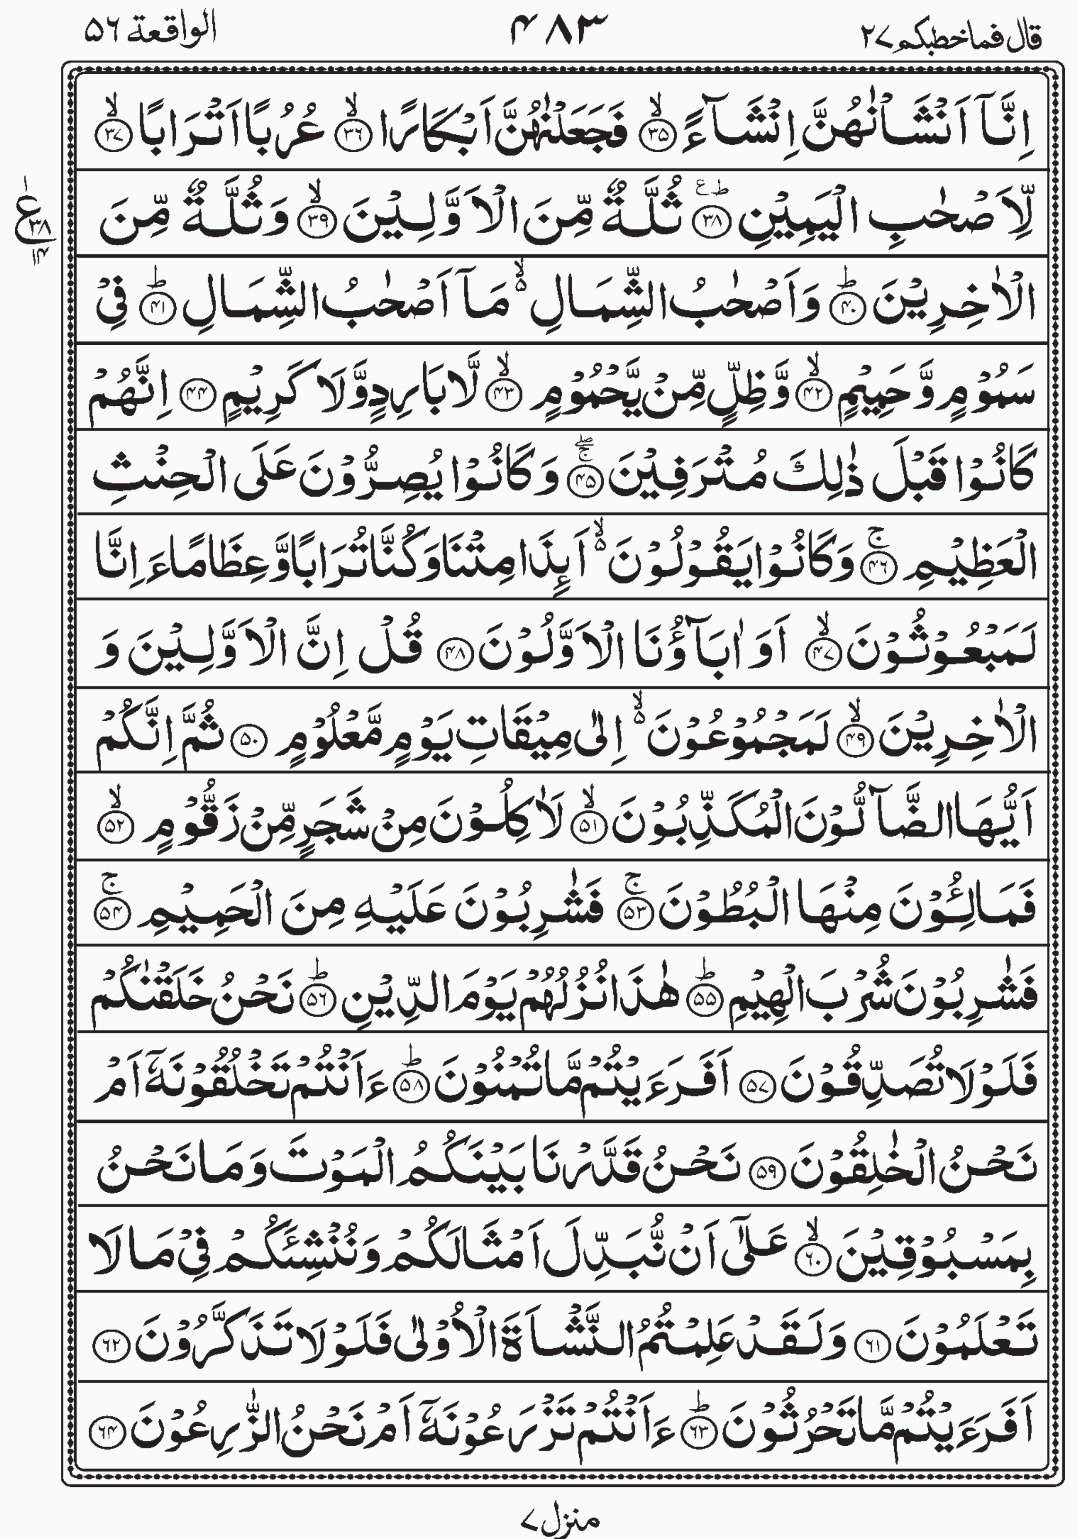 قال فما خطبكم ٢٧
٤٨٣
الواقعة ٥٦
اِنَّاۤ اَنْشَاْنٰهُنَّ اِنْشَآءًۙ ﴿۳۵﴾ فَجَعَلْنٰهُنَّ اَبْكَارًاۙ ﴿۳۶﴾ عُرُبًا اَتْرَابًاۙ ﴿۳۷﴾
لِّاَصْحٰبِ الْيَمِيْنِؕ ع ﴿۳۸﴾ ثُلَّةٌ مِّنَ الْاَوَّلِيْنَۙ ﴿۳۹﴾ وَثُلَّةٌ مِّنَ
ع ١ ٣٨ ١٤
الْاٰخِرِيْنَؕ ﴿۴۰﴾ وَاَصْحٰبُ الشِّمَالِ ۙ۬ مَاۤ اَصْحٰبُ الشِّمَالِؕ ﴿۴۱﴾ فِيْ
سَمُوْمٍ وَّحَمِيْمٍۙ ﴿۴۲﴾ وَّظِلٍّ مِّنْ يَّحْمُوْمٍۙ ﴿۴۳﴾ لَّا بَارِدٍ وَّلَا كَرِيْمٍ ﴿۴۴﴾ اِنَّهُمْ
كَانُوْا قَبْلَ ذٰلِكَ مُتْرَفِيْنَۚۖ ﴿۴۵﴾ وَكَانُوْا يُصِرُّوْنَ عَلَى الْحِنْثِ
الْعَظِيْمِۚ ﴿۴۶﴾ وَكَانُوْا يَقُوْلُوْنَ ۙ۬ اَىِٕذَا مِتْنَا وَكُنَّا تُرَابًا وَّعِظَامًا ءَاِنَّا
لَمَبْعُوْثُوْنَۙ ﴿۴۷﴾ اَوَاٰبَآؤُنَا الْاَوَّلُوْنَ ﴿۴۸﴾ قُلْ اِنَّ الْاَوَّلِيْنَ وَ
الْاٰخِرِيْنَۙ ﴿۴۹﴾ لَمَجْمُوْعُوْنَ ۙ۬ اِلٰى مِيْقَاتِ يَوْمٍ مَّعْلُوْمٍ ﴿۵۰﴾ ثُمَّ اِنَّكُمْ
اَيُّهَا الضَّآلُّوْنَ الْمُكَذِّبُوْنَۙ ﴿۵۱﴾ لَاٰكِلُوْنَ مِنْ شَجَرٍ مِّنْ زَقُّوْمٍۙ ﴿۵۲﴾
فَمَالِـُٔوْنَ مِنْهَا الْبُطُوْنَۚ ﴿۵۳﴾ فَشٰرِبُوْنَ عَلَيْهِ مِنَ الْحَمِيْمِۚ ﴿۵۴﴾
فَشٰرِبُوْنَ شُرْبَ الْهِيْمِؕ ﴿۵۵﴾ هٰذَا نُزُلُهُمْ يَوْمَ الدِّيْنِؕ ﴿۵۶﴾ نَحْنُ خَلَقْنٰكُمْ
فَلَوْلَا تُصَدِّقُوْنَ ﴿۵۷﴾ اَفَرَءَيْتُمْ مَّا تُمْنُوْنَؕ ﴿۵۸﴾ ءَاَنْتُمْ تَخْلُقُوْنَهٗۤ اَمْ
نَحْنُ الْخٰلِقُوْنَ ﴿۵۹﴾ نَحْنُ قَدَّرْنَا بَيْنَكُمُ الْمَوْتَ وَمَا نَحْنُ
بِمَسْبُوْقِيْنَۙ ﴿۶۰﴾ عَلٰۤى اَنْ نُّبَدِّلَ اَمْثَالَكُمْ وَنُنْشِئَكُمْ فِيْ مَا لَا
تَعْلَمُوْنَ ﴿۶۱﴾ وَلَقَدْ عَلِمْتُمُ النَّشْاَةَ الْاُوْلٰى فَلَوْلَا تَذَكَّرُوْنَ ﴿۶۲﴾
اَفَرَءَيْتُمْ مَّا تَحْرُثُوْنَؕ ﴿۶۳﴾ ءَاَنْتُمْ تَزْرَعُوْنَهٗۤ اَمْ نَحْنُ الزّٰرِعُوْنَ ﴿۶۴﴾
منزل ٧